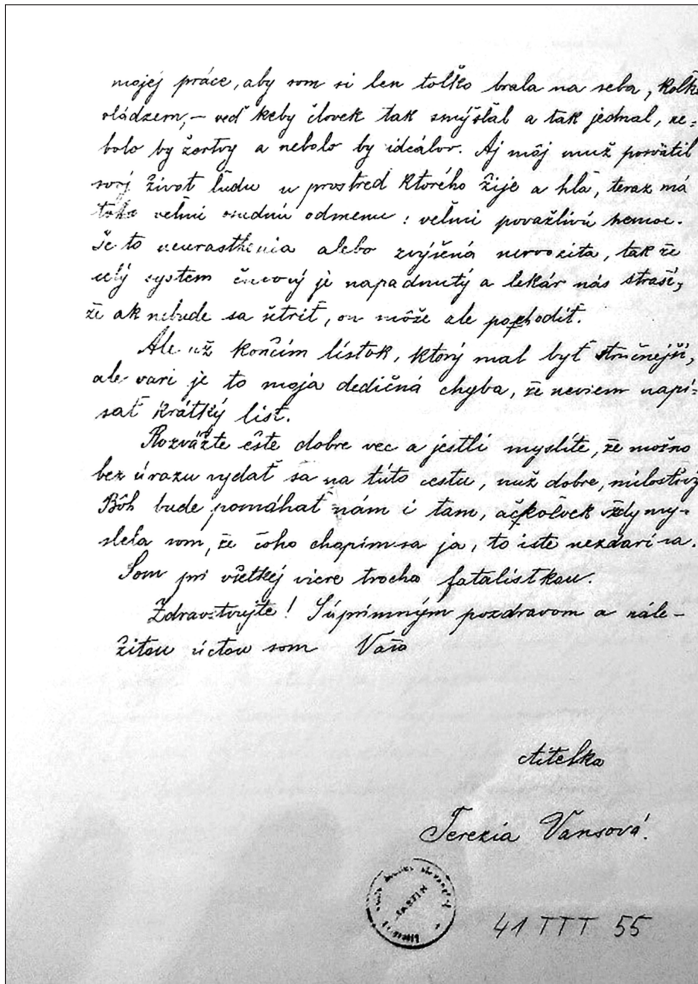 mojej práce, aby som si len tolko brala na seba, kolko
vládzem, – veď keby človek tak smýšlal a tak jednal, ne=
bolo by žertvy a nebolo by ideálov. Aj môj muž posvätil
svoj život ludu u prostred ktorého žije a hla, teraz má
velmi osudnú odmenu: velmi považlivú nemoc.
Je to neurasthenia alebo zvýšená nervozita, tak že
celý system čuvový je napadnutý a lekár nás straší,
že ak nebude sa šetriť, on môže ale pochodiť.
Ale už končím lístok, ktorý mal byť stručnejší,
ale vari je to moja dedičná chyba, že neviem napí=
sať krátký list.
Rozvážte ešte dobre vec a jestli myslíte, že možno
bez úrazu vydať sa na túto cestu, nuž dobre, milostivý
Bôh bude pomáhať nám i tam, ačkolvek vždy my-
slela som, že čoho chapím sa ja, to iste nezdarí sa.
Som pri všetkej viere trocha fatalistkou.
Zdravstvujte! Súprimným pozdravom a nále-
žitou úctou som Vaša
ctitelka
Terezia Vansová.
MARTIN
41 TTT 55